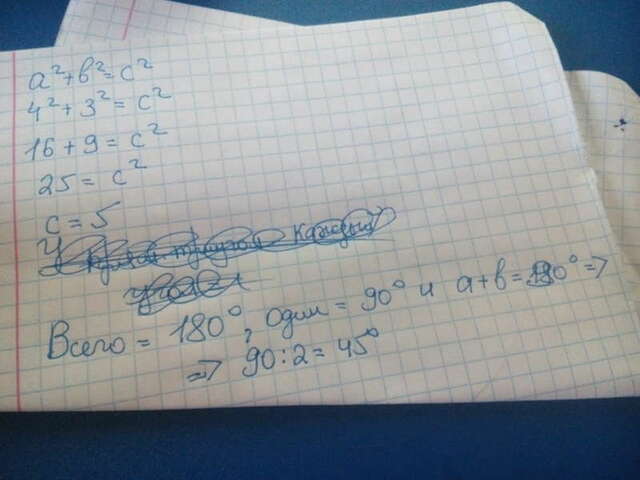 a²+b²=c²
4²+3²=c²
16+9=c²
25=c²
c=5
каждый
Всего = 180°, один = 90° и a+b=90° =>
=> 90:2=45°